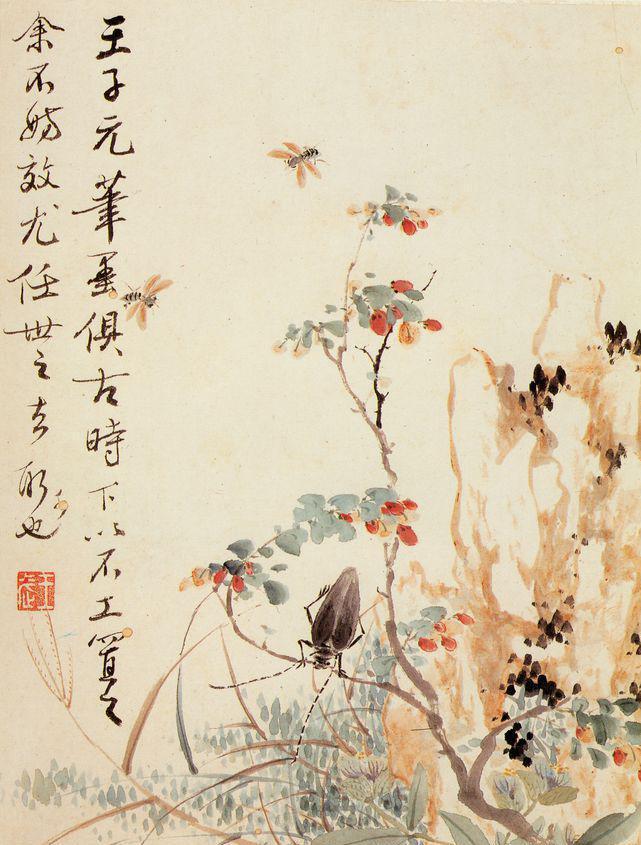 王子元筆墨俱古時下以不工置之
余不妨效尤任世之去取也
王武